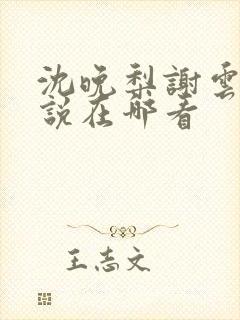 沈晚梨謝雲
說在哪看
王志文